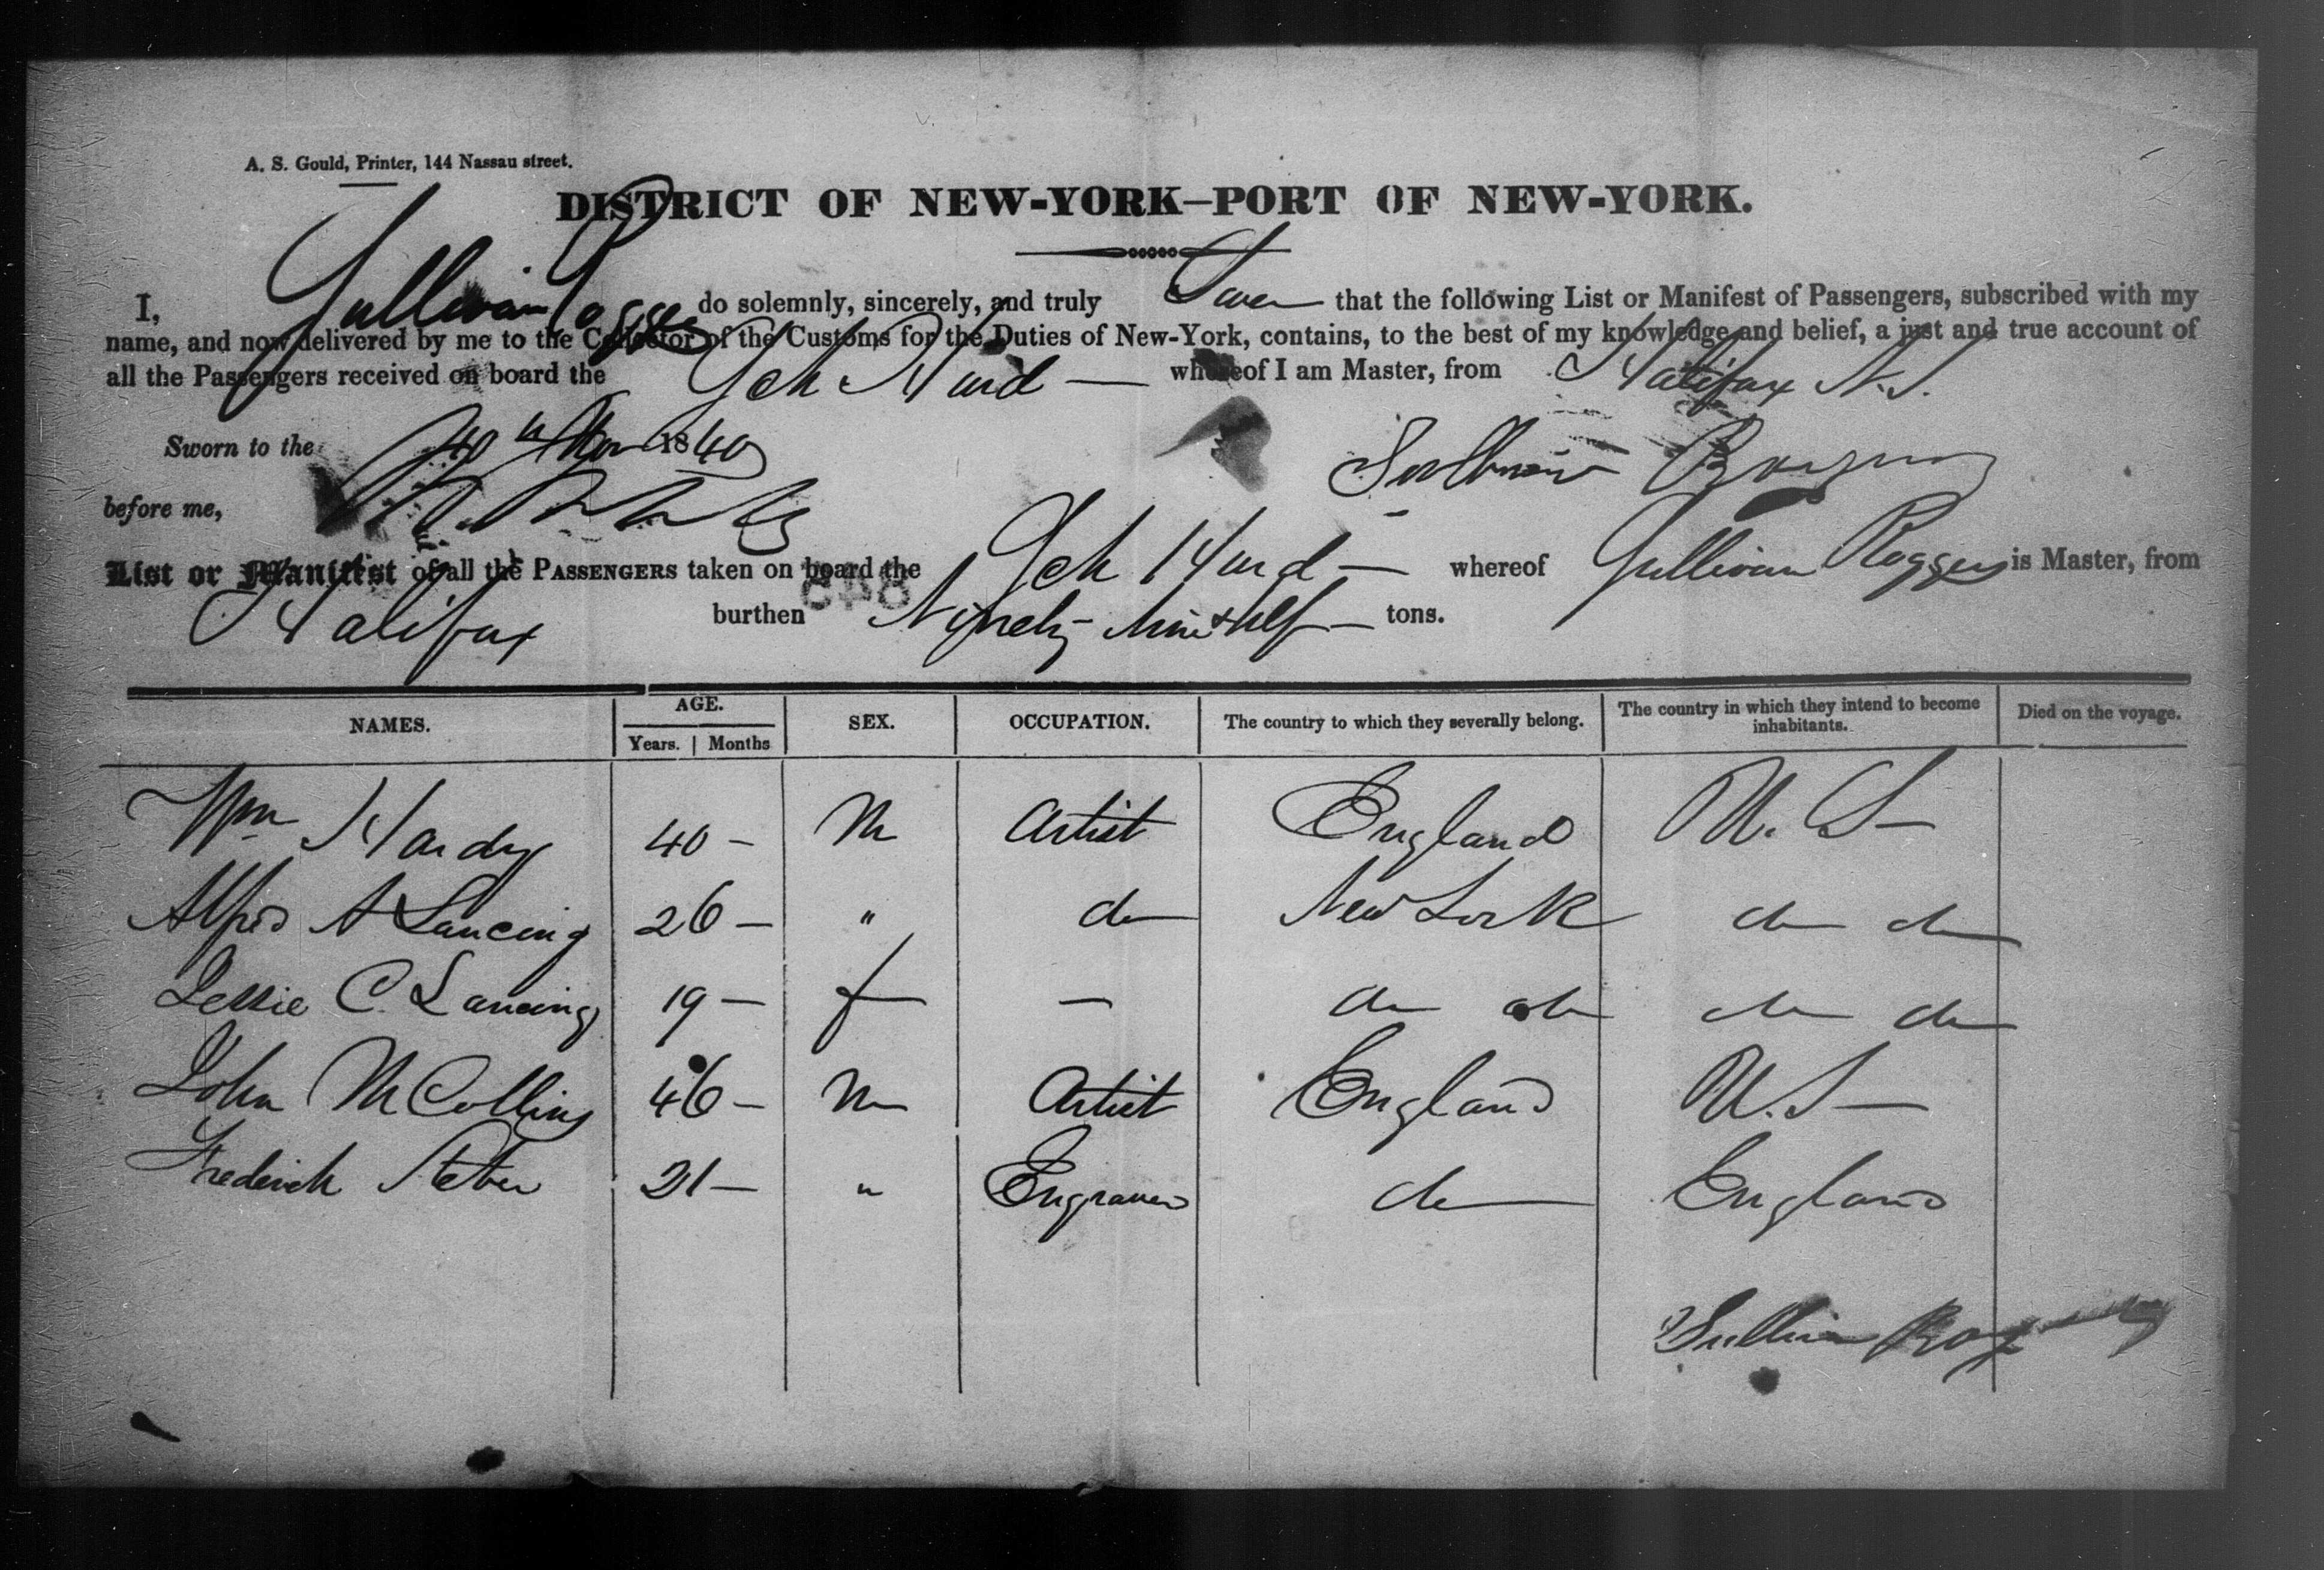 A. S. Gould, Printer, 144 Nassau street.
DISTRICT OF NEW-YORK—PORT OF NEW-YORK.
I, Sullivan do solemnly, sincerely, and truly Swear that the following List or Manifest of Passengers, subscribed with my
name, and now delivered by me to the Collector of the Customs for the Duties of New-York, contains, to the best of my knowledge and belief, a just and true account of
all the Passengers received on board the Sch Hurd — whereof I am Master, from Halifax N.S.
Sworn to the 1840
before me,
List or Manifest of all the PASSENGERS taken on board the Sch Hurd — whereof Sullivan Roggers is Master, from
Halifax burthen Ninety Nine & Hlf — tons.
NAMES. AGE. SEX. OCCUPATION. The country to which they severally belong. The country in which they intend to become inhabitants. Died on the voyage.
Years. Months
Wm Hardy 40 — M Artist England U. S —
Alfred A Lancing 26 — " do New York do do
Jessie C. Lancing 19 — f — do do do do
John M Collins 46 — M Artist England U. S —
Frederick 21 — " Engraver do England
Sullivan